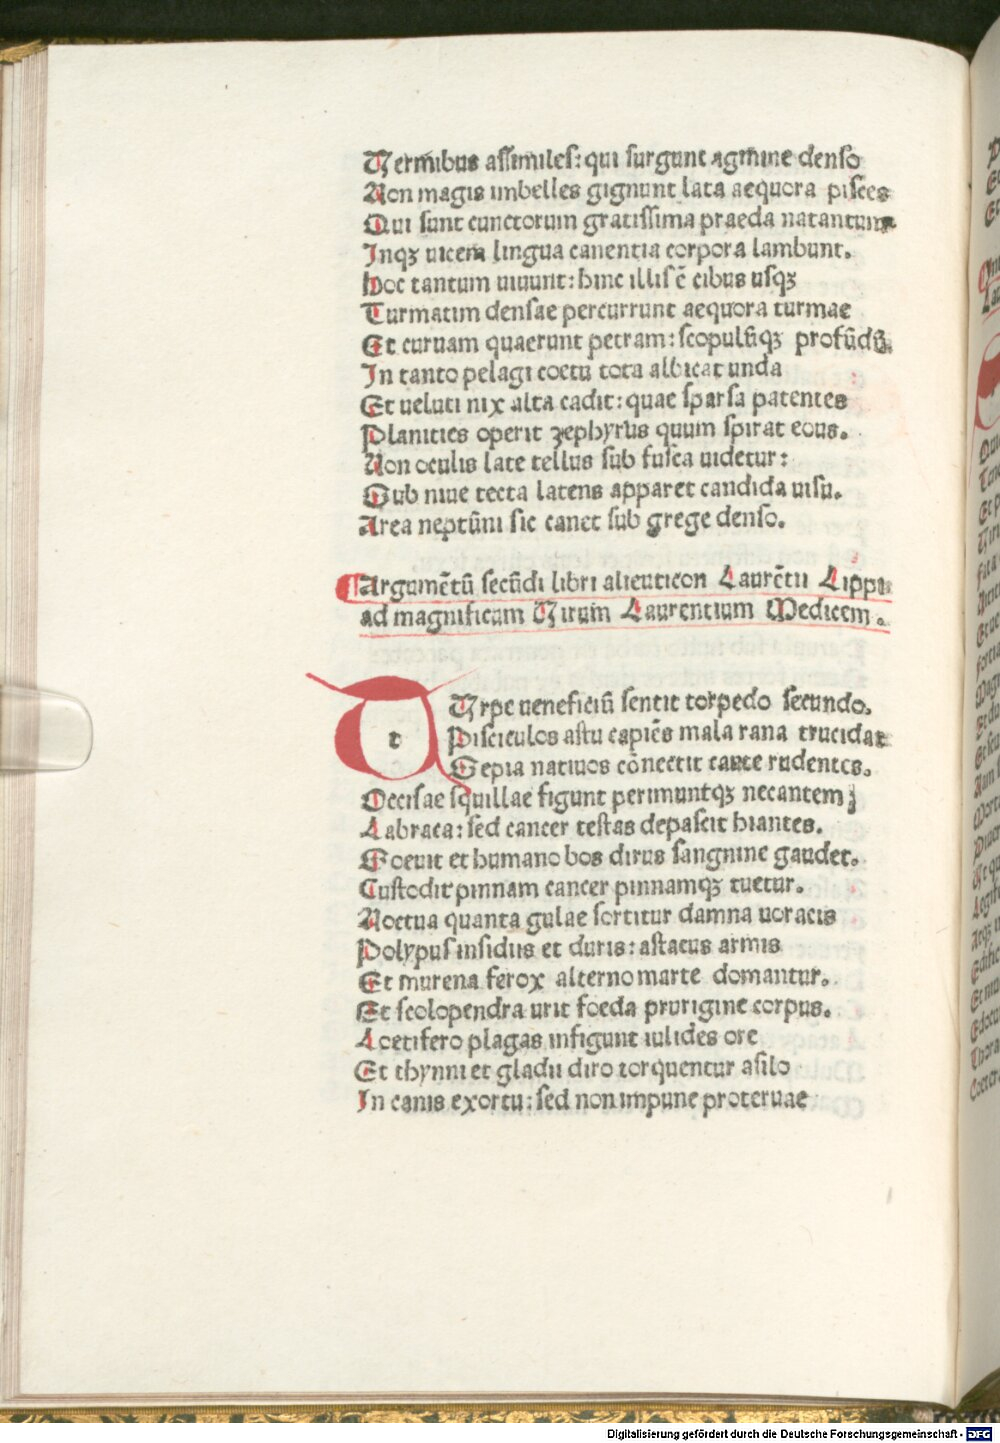 Vermibus assimiles: qui surgunt agmine denso
Non magis imbelles gignunt lata aequora pisces
Qui sunt cunctorum gratissima praeda natantum
Inqꝫ uicem lingua canentia corpora lambunt.
Hoc tantum uiuunt: hinc illis ē cibus usqꝫ
Turmatim densae percurrunt aequora turmae
Et curuam quaerunt petram: scopulūqꝫ profūdū.
In tanto pelagi coetu tota albicat unda
Et ueluti nix alta cadit: quae sparsa patentes
Planities operit zephyrus quum spirat eous.
Non oculis late tellus sub fusca uidetur:
Sub niue tecta latens apparet candida uisu.
Area neptūni sic canet sub grege denso.
Argumētū secūdi libri alieuticon Laurētii Lippi
ad magnificum Virum Laurentium Medicem.
t
Vrpe ueneficiū sentit torpedo secundo.
Pisciculos astu capiēs mala rana trucidat
Sepia natiuos cōnectit cante rudentes.
Decisae squillae figunt perimuntqꝫ necantem
Labraca: sed cancer testas depascit hiantes.
Foeuit et humano bos dirus sangnine gaudet.
Custodit pinnam cancer pinnamqꝫ tuetur.
Noctua quanta gulae sortitur damna uoracis
Polypus insidiis et duris: astacus armis
Et murena ferox alterno marte domantur.
Et scolopendra urit foeda prurigine corpus.
Acetifero plagas infigunt iulides ore
Et thynni et gladii diro torquentur asilo
In canis exortu: sed non impune proteruae
Digitalisierung gefördert durch die Deutsche Forschungsgemeinschaft - DFG